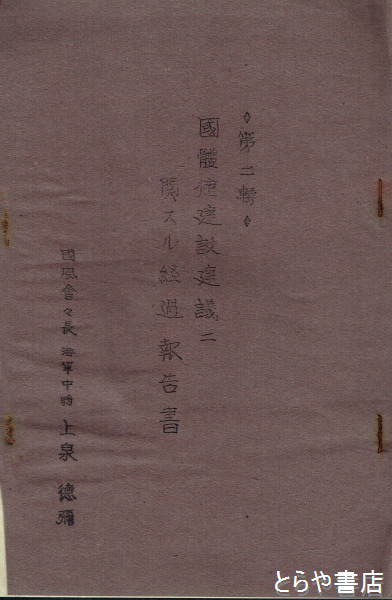 ◇第二輯◇
國體擁建設建議ニ
関スル経過報告書
國風會々長 海軍中将 上泉 德彌
とらや書店